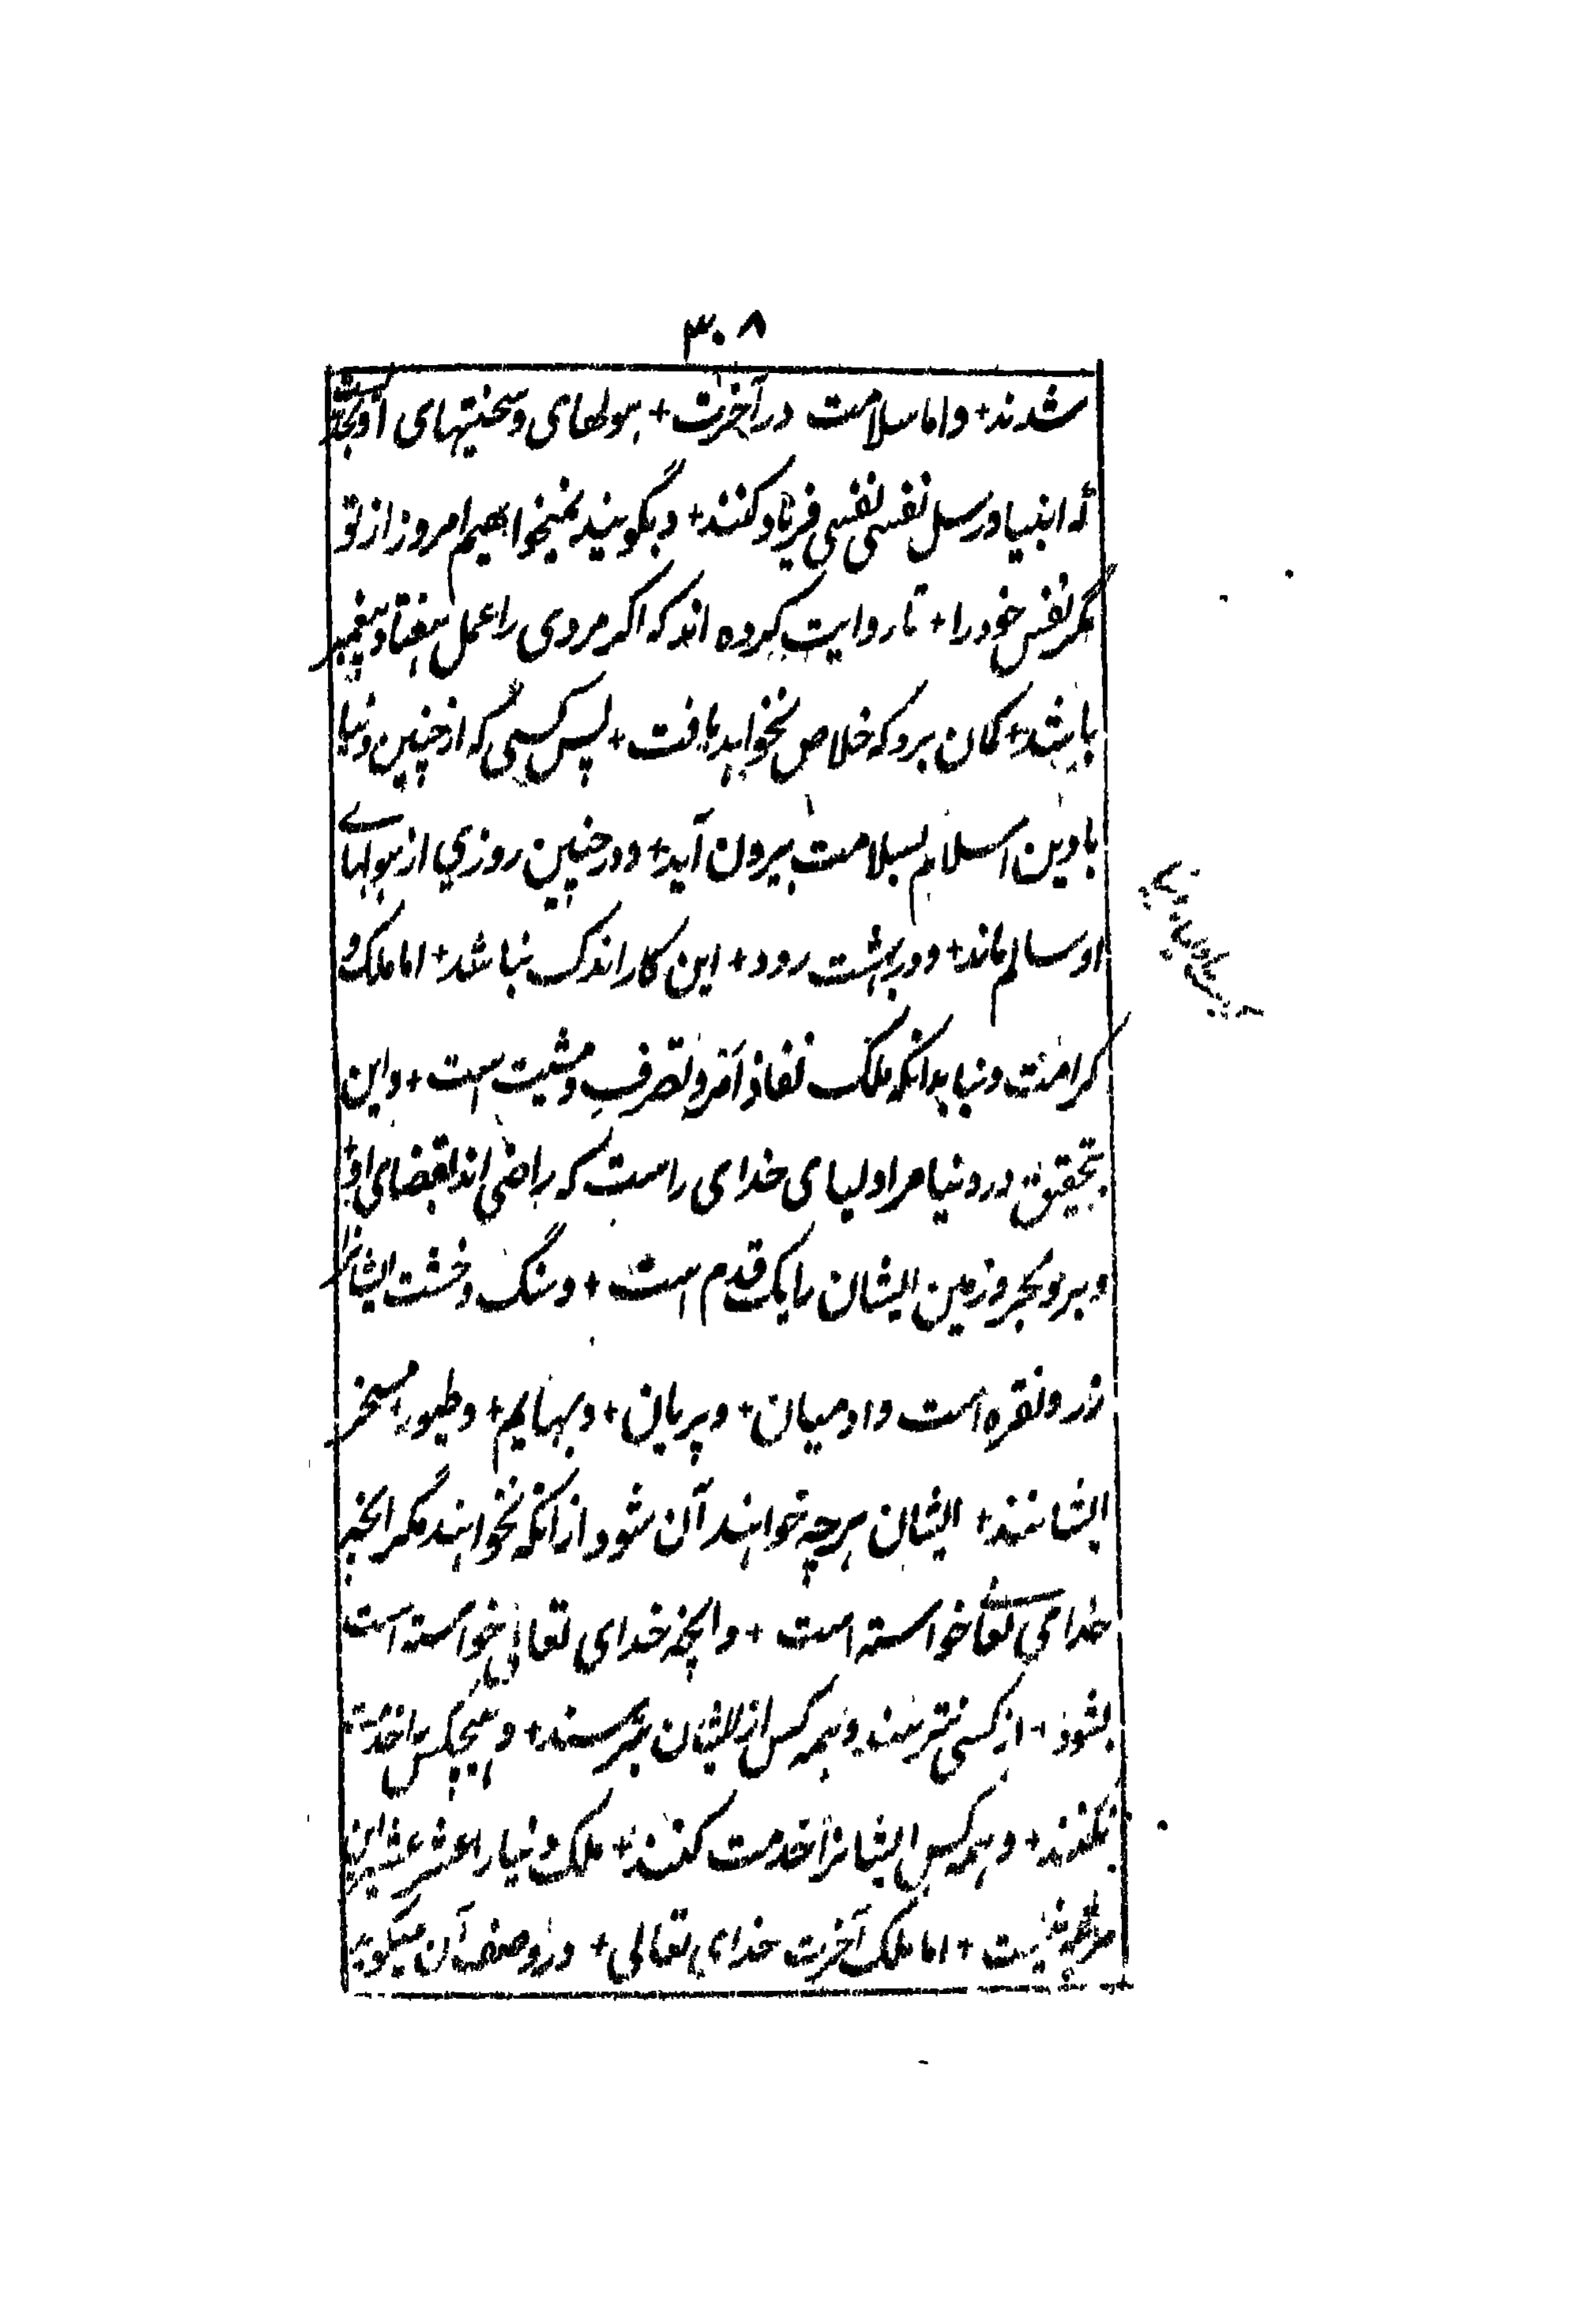 ۳۰۸
شدند + واما سلامت در آخرت + هولهای و سختیهای او بجد است
که انبیا و رسل نفسی نفسی فریاد کنند + و بگویند نمیخواهیم امروز از تو
مگر نفس خود را + تا روایت کرده اند که اگر مردی را عمل هفتاد پیغمبر
باشد + گمان برد که خلاص نخواهد یافت + پس کسی که از چنین دنیا
با دین اسلام بسلامت بیرون آید + و در چنین روزی از هولهای
او سالم ماند + و در بهشت رود + این کار اندک نباشد + اما ملک و
کرامت دنیا بدانکه ملک نفاذ امر و تصرف و مشیت است + و این
بتحقیق در دنیا مر اولیای خدای راست که راضی اند بقضای او
و بر و بحر و زمین ایشان را یک قدم است + و سنگ و خشت ایشانرا
زر و نقره است و ادمیان + و پریان + و بهایم + و طیور + مسخر
ایشانند + ایشان هرچه خواهند آن شود از انکه نخواهند مگر انچه
خدای تعالی خواسته است + و انچه خدای تعالی خواسته است
بشود + از کسی نترسند و همه کس از ایشان بترسند + و هیچکس را خدمت
نکنند + و همه کس ایشانرا خدمت کنند + ملک دنیا را عشر عشیر این
مرتبه نیست + اما ملک آخرت خدای تعالی + در وصف آن میگوید